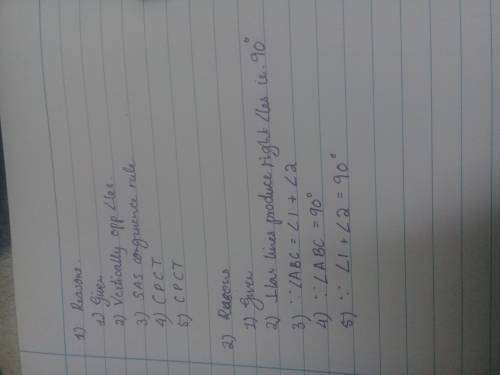 1) Reasons.
1) Given
2) Vertically opp ∠les.
3) SAS congruence rule
4) CPCT
5) CPCT
2) Reasons
1) Given
2) ⊥lar lines produce right ∠les i.e. 90°
3) ∵ ∠ABC = ∠1 + ∠2
4) ∵ ∠ABC = 90°
5) ∵ ∠1 + ∠2 = 90°